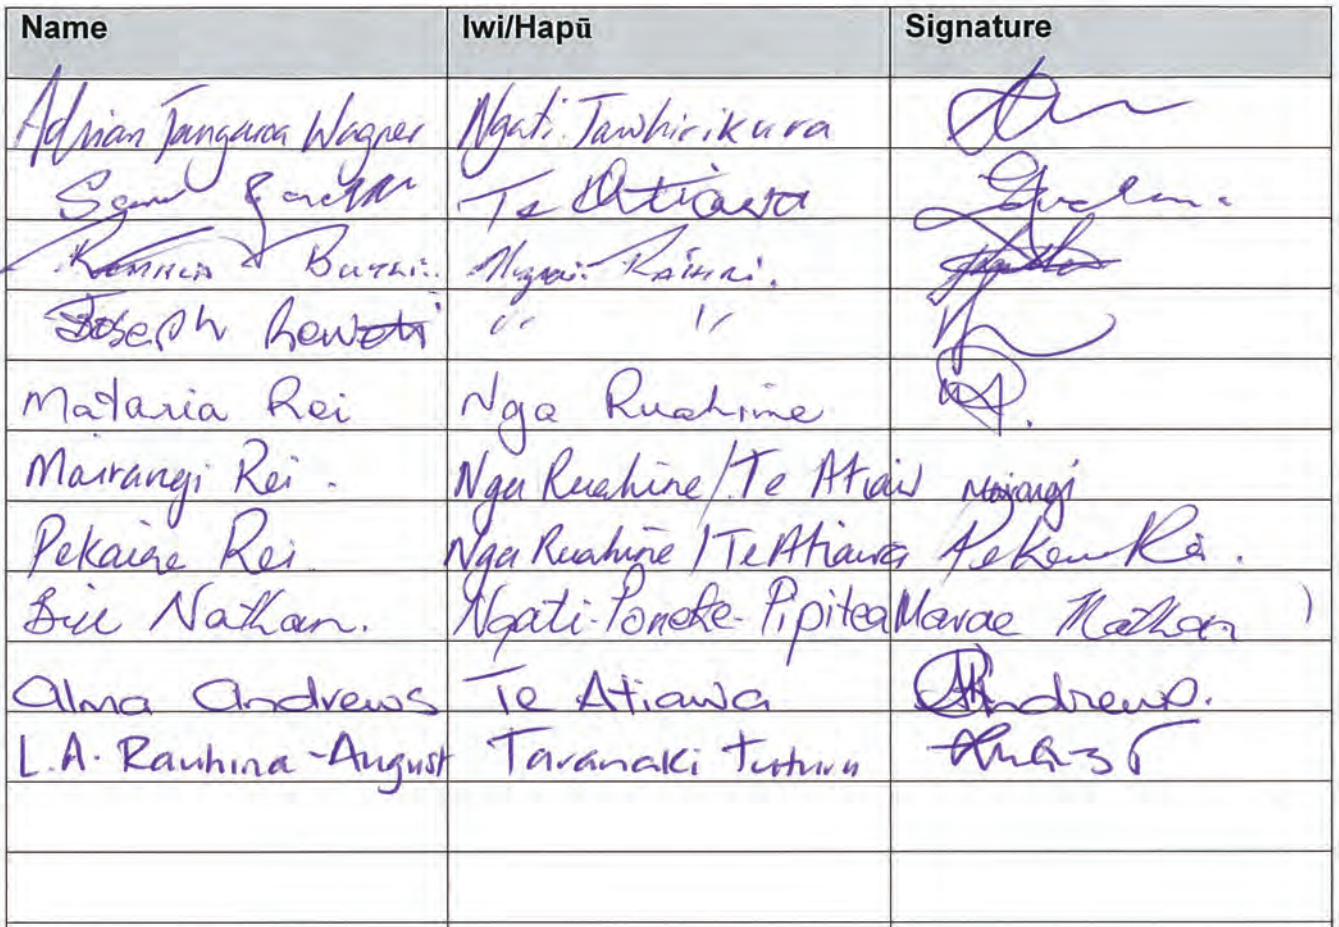 Name Iwi/Hapū Signature
Adrian Tangaroa Wagner Ngati Tawhirikura
Sam Te Atiawa
Ngati
Joseph " "
Mataria Rei Nga Ruahine
Mairangi Rei. Nga Ruahine/Te Atiaw Mairangi
Pekaire Rei Nga Ruahine/Te Atiawa Rei.
Bill Nathan. Ngati-Poneke-Pipitea Marae Nathan
Alma Andrews Te Atiawa Andrews.
L.A. Rauhina-August Taranaki Tuturu